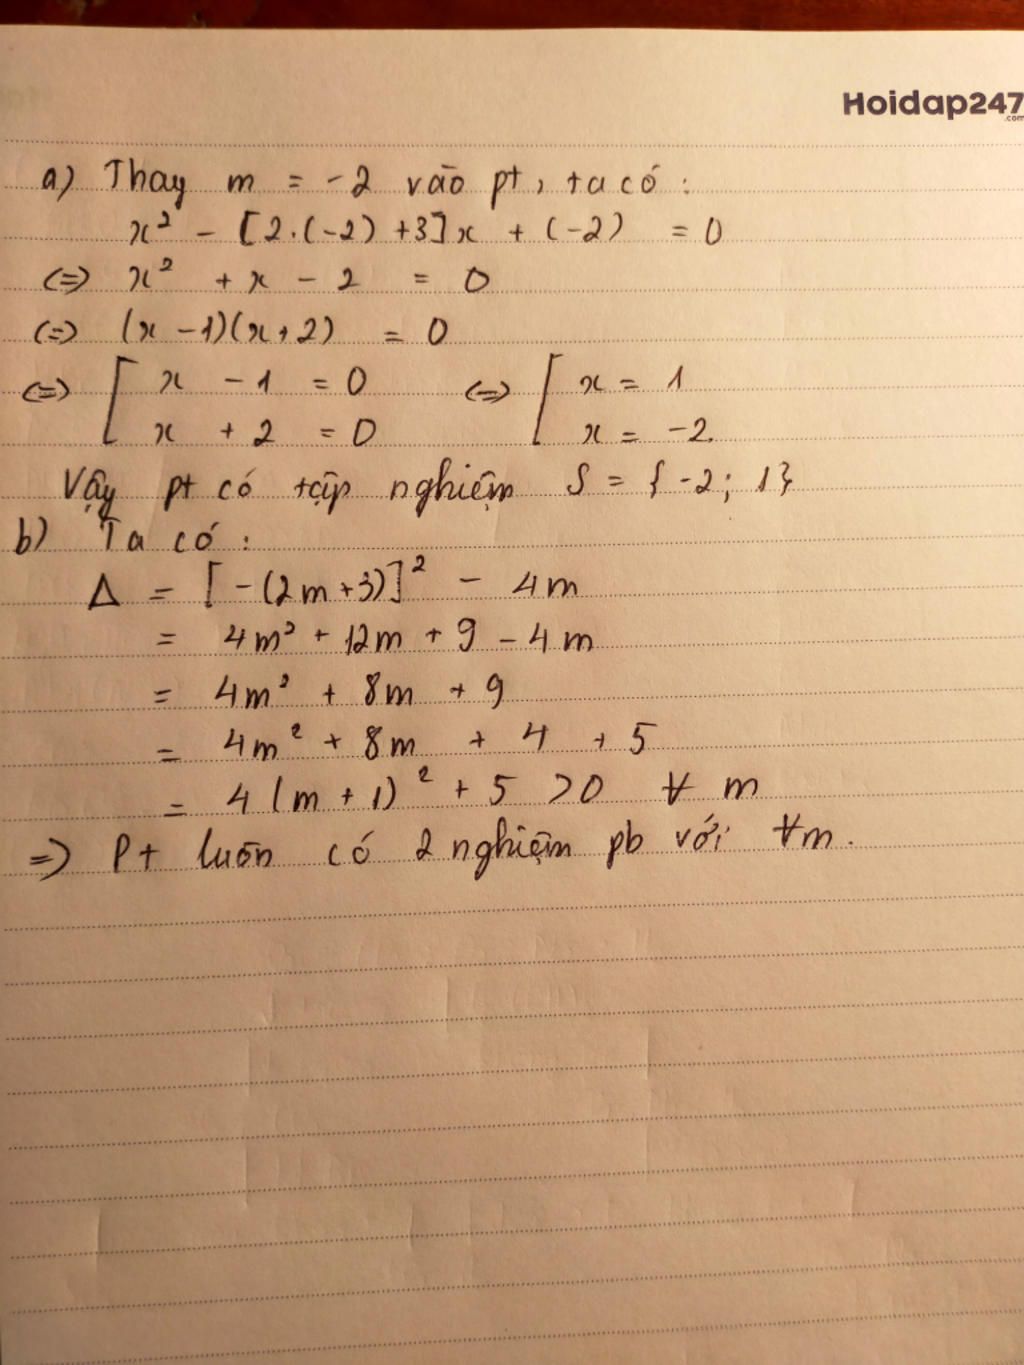 Hoidap247
.com
a) Thay m = -2 vào pt, ta có :
x² - [2.(-2) +3]x + (-2) = 0
(=) x² + x - 2 = 0
(=) (x -1)(x+2) = 0
(=) [ x - 1 = 0 (=) [ x = 1
x + 2 = 0 x = -2.
Vậy pt có tập nghiệm S = { -2; 1}
b) Ta có :
Δ = [-(2m+3)]² - 4m
= 4m² + 12m + 9 - 4m
= 4m² + 8m + 9
= 4m² + 8m + 4 + 5
= 4(m + 1)² + 5 >0 ∀ m
=) Pt luôn có 2 nghiệm pb với ∀m.